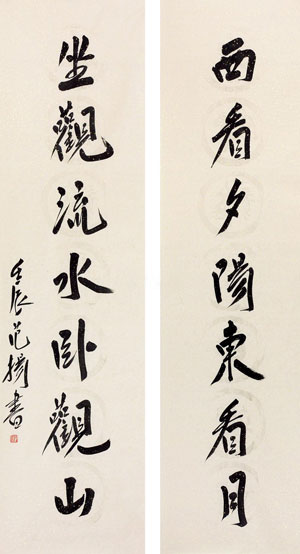 西看夕陽東看月
坐觀流水卧觀山
壬辰范揚書